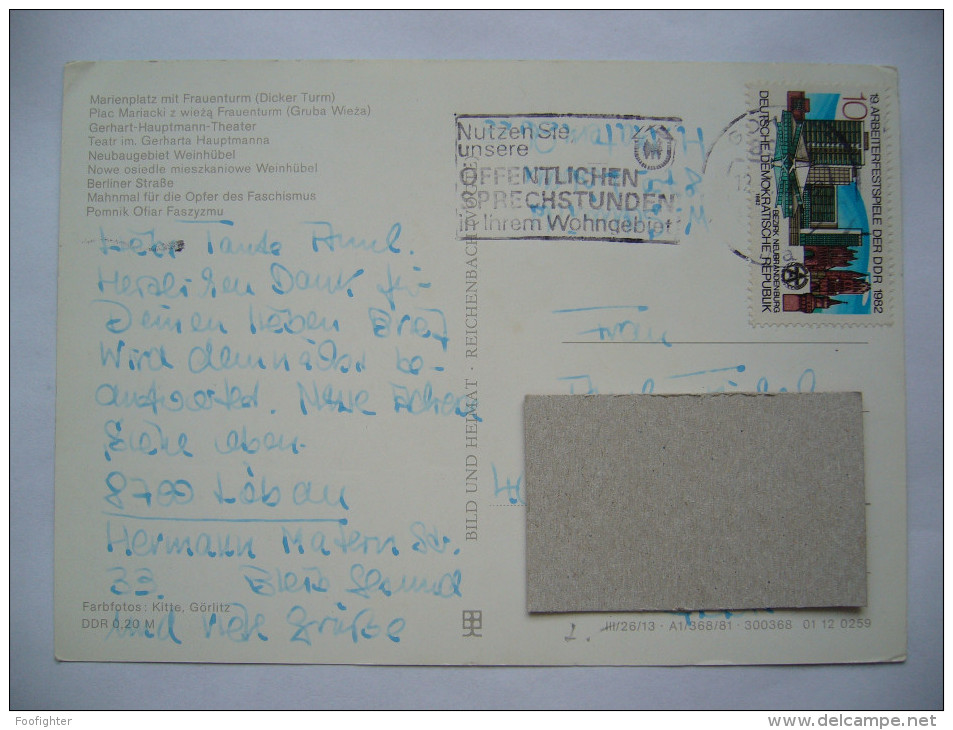 Marienplatz mit Frauenturm (Dicker Turm)
Plac Mariacki z wieżą Frauenturm (Gruba Wieża)
Gerhart-Hauptmann-Theater
Teatr im. Gerharta Hauptmanna
Neubaugebiet Weinhübel
Nowe osiedle mieszkaniowe Weinhübel
Berliner Straße
Mahnmal für die Opfer des Faschismus
Pomnik Ofiar Faszyzmu
Tante
Herzlichen Dank für
Deinen lieben Brief
Wird demnächst be-
antwortet. Neue
Siehe oben.
8700 Löbau
Hermann Matern Str.
33. Bleib Gesund
und viele Grüße
Farbfotos: Kitte, Görlitz
DDR 0,20 M
BILD UND HEIMAT · REICHENBACH
Nutzen Sie
unsere
ÖFFENTLICHEN
SPRECHSTUNDEN
in Ihrem Wohngebiet
10
19. ARBEITERFESTSPIELE DER DDR 1982
BEZIRK NEUBRANDENBURG
DEUTSCHE DEMOKRATISCHE REPUBLIK
1982
Frau
III/26/13 · A1/368/81 · 300368 01 12 0259
Foofighter
www.delcampe.net